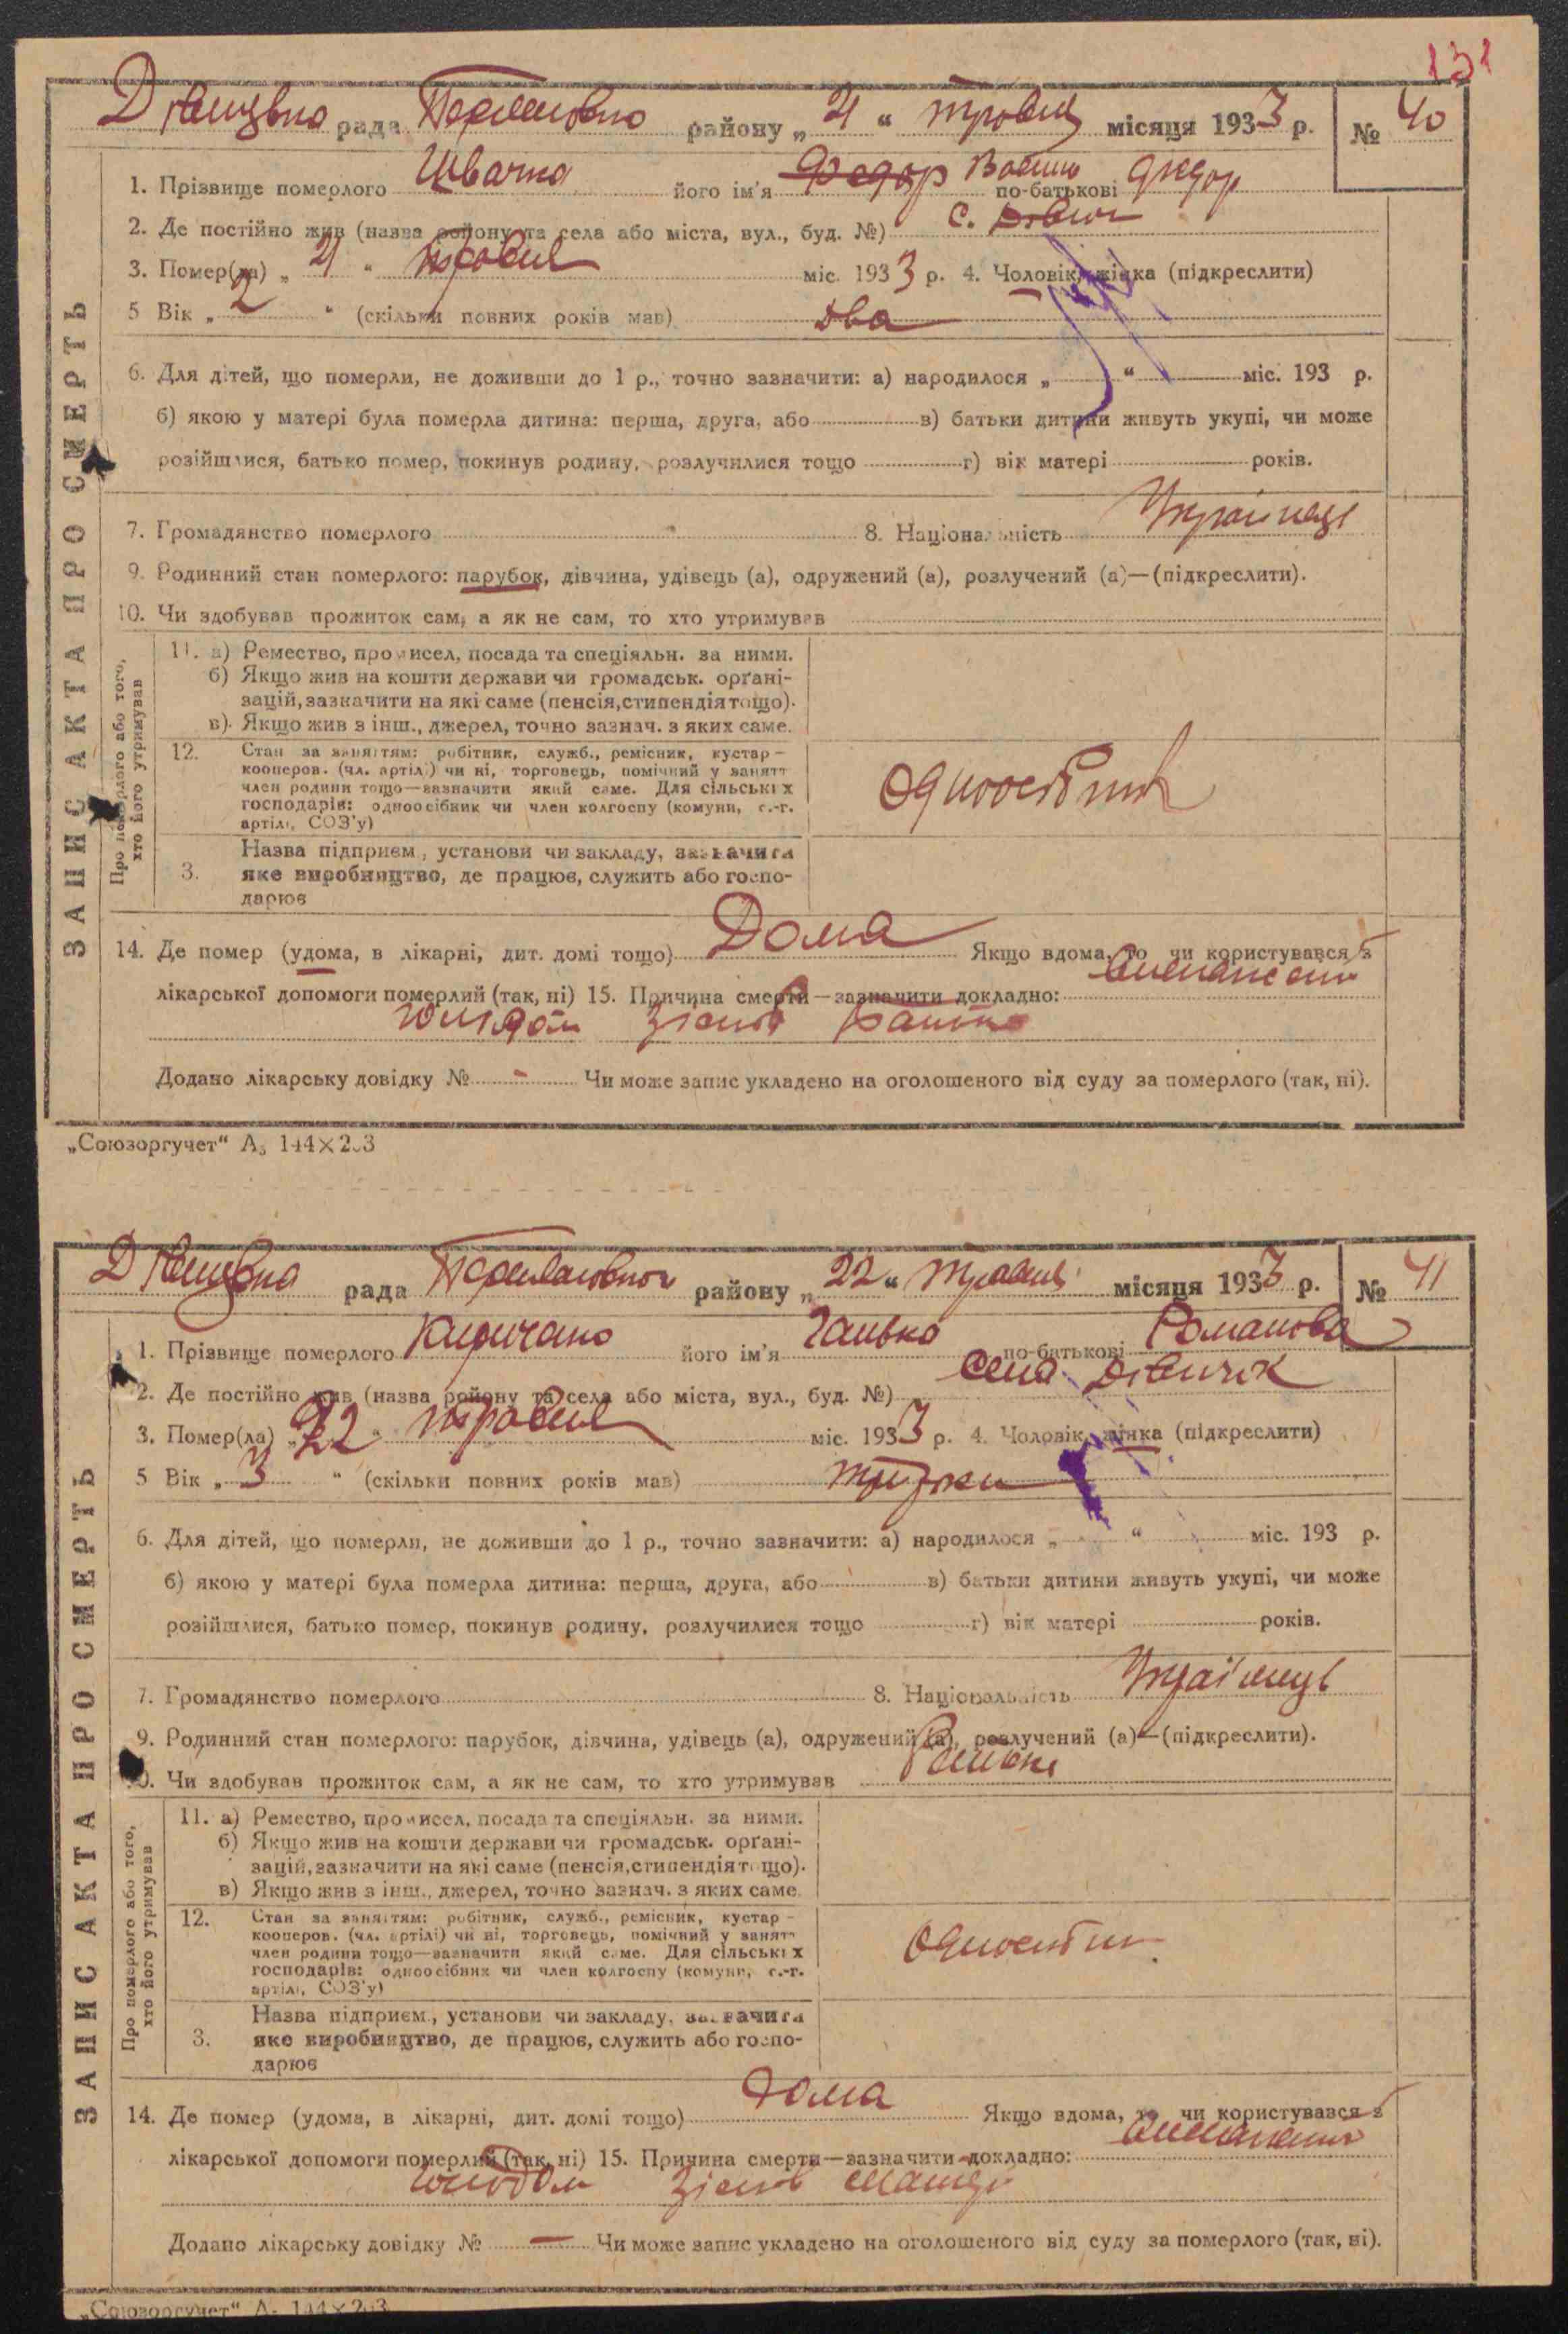 131
рада районуॱ„ 21 “ травня місяця 1933 р. № 40
1. Прізвище померлого Швачка його ім'я Федор по-батькові Федор
2. Де постійно жив (назва району та села або міста, вул., буд. №) с.
3. Помер(ла) „ 21 “ травня міс. 1933 р. 4. Чоловік, жінка (підкреслити)
5 Вік „ 2 “ (скільки повних років мав) два
6. Для дітей, що померли, не доживши до 1 р., точно зазначити: а) народилося „ “ міс. 193 р.
б) якою у матері була померла дитина: перша, друга, або в) батьки дитини живуть укупі, чи може
розійшлися, батько помер, покинув родину, розлучилися тощо г) вік матері років.
7. Громадянство померлого 8. Національність Українец
9. Родинний стан померлого: парубок, дівчина, удівець (а), одружений (а), розлучений (а)—(підкреслити).
10. Чи здобував прожиток сам, а як не сам, то хто утримував
ЗАПИС АКТА ПРО СМЕРТЬ
Про померлого або того,
хто його утримував
11. а) Ремество, промисел, посада та спеціяльн. за ними.
б) Якщо жив на кошти держави чи громадськ. орґані-
зацій, зазначити на які саме (пенсія, стипендія тощо).
в) Якщо жив з інш., джерел, точно зазнач. з яких саме.
12. Стан за заняттям: робітник, служб., ремісник, кустар–
кооперов. (чл. артілі) чи ні, торговець, помічний у занятт
член родини тощо—зазначити який саме. Для сільських
господарів: одноосібник чи член колгоспу (комуни, с.-г.
артілі, СОЗ'у)
Одноосібник
Назва підприєм., установи чи закладу, зазначити
3. яке виробництво, де працює, служить або госпо-
дарює
14. Де помер (удома, в лікарні, дит. домі тощо) Дома Якщо вдома, то чи користувався з
лікарської допомоги померлий (так, ні) 15. Причина смерти—зазначити докладно:
Додано лікарську довідку № - Чи може запис укладено на оголошеного від суду за померлого (так, ні).
„Союзоргучет“ А5 144×203
рада району „ 22 “ травня місяця 1933 р. № 41
1. Прізвище померлого його ім'я Ганька по-батькові Романова
2. Де постійно жив (назва району та села або міста, вул., буд. №) село
3. Помер(ла) „ 22 “ травня міс. 1933 р. 4. Чоловік, жінка (підкреслити)
5 Вік „ 3 “ (скільки повних років мав) три роки
6. Для дітей, що померли, не доживши до 1 р., точно зазначити: а) народилося „ “ міс. 193 р.
б) якою у матері була померла дитина: перша, друга, або в) батьки дитини живуть укупі, чи може
розійшлися, батько помер, покинув родину, розлучилися тощо г) вік матері років.
7. Громадянство померлого 8. Національність Українець
9. Родинний стан померлого: парубок, дівчина, удівець (а), одружений (а), розлучений (а)—(підкреслити).
10. Чи здобував прожиток сам, а як не сам, то хто утримував
ЗАПИС АКТА ПРО СМЕРТЬ
Про померлого або того,
хто його утримував
11. а) Ремество, промисел, посада та спеціяльн. за ними.
б) Якщо жив на кошти держави чи громадськ. орґані-
зацій, зазначити на які саме (пенсія, стипендія тощо).
в) Якщо жив з інш., джерел, точно зазнач. з яких саме.
12. Стан за заняттям: робітник, служб., ремісник, кустар–
кооперов. (чл. артілі) чи ні, торговець, помічний у занятт
член родини тощо—зазначити який саме. Для сільських
господарів: одноосібник чи член колгоспу (комуни, с.-г.
артілі, СОЗ'у)
Назва підприєм., установи чи закладу, зазначити
3. яке виробництво, де працює, служить або госпо-
дарює
14. Де помер (удома, в лікарні, дит. домі тощо) Дома Якщо вдома, то чи користувався з
лікарської допомоги померлий (так, ні) 15. Причина смерти—зазначити докладно:
Додано лікарську довідку № — Чи може запис укладено на оголошеного від суду за померлого (так, ні).
„Союзоргучет“ А5 144×203